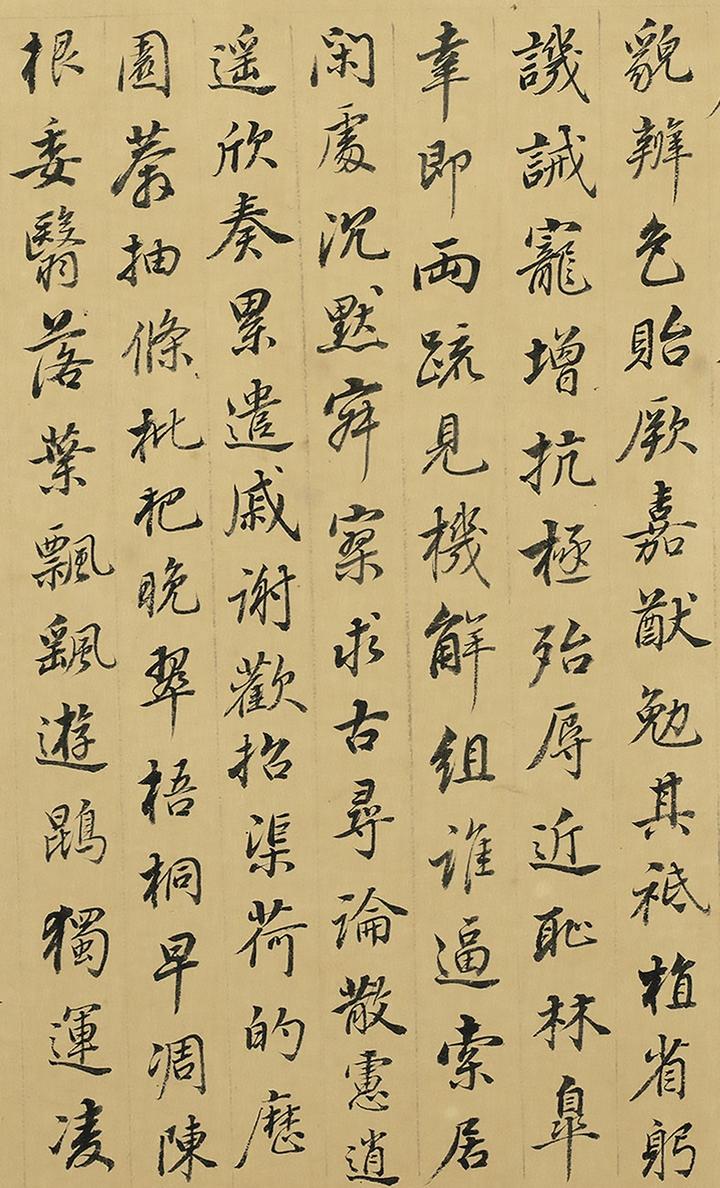 貌辨色貽厥嘉猷勉其祗植省躬
譏誡寵增抗極殆辱近恥林皐
幸即兩疏見機解組誰逼索居
閑處沉默寂寥求古尋論散慮逍
遥欣奏累遣慼謝歡招渠荷的歷
園莽抽條枇杷晚翠梧桐早凋陳
根委翳落葉飄颻遊鵾獨運凌